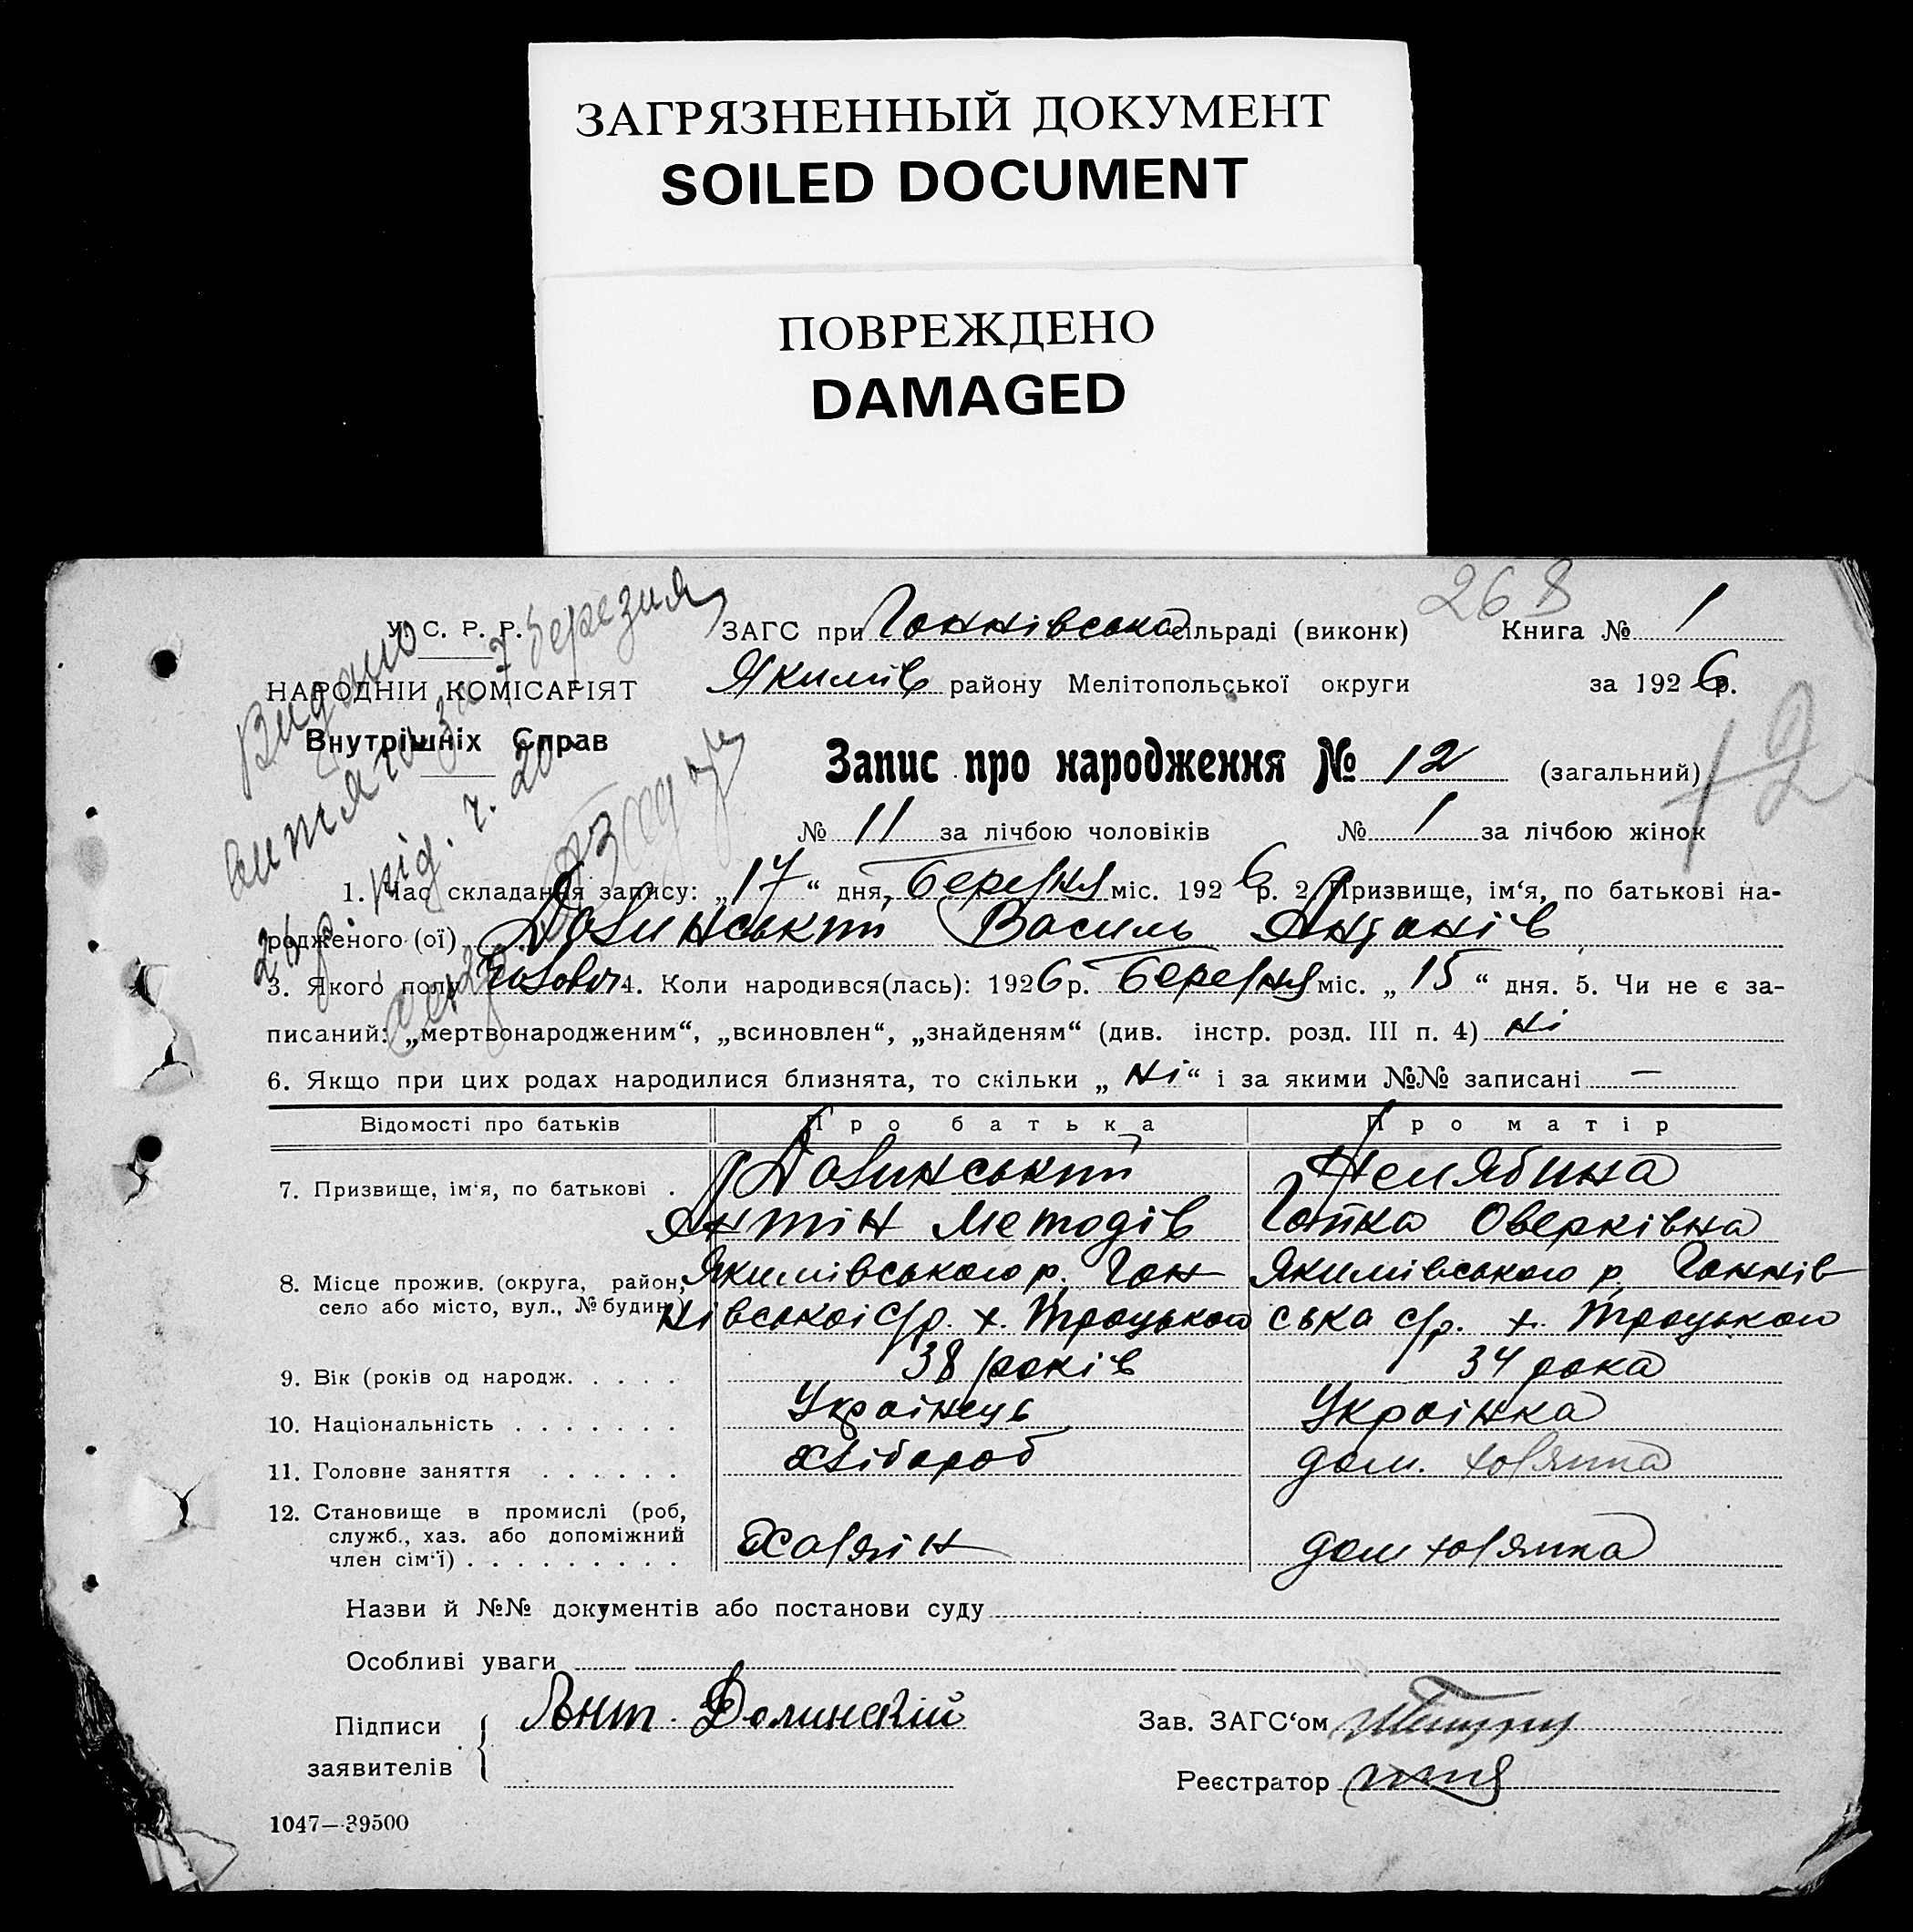 ЗАГРЯЗНЕННЫЙ ДОКУМЕНТ
SOILED DOCUMENT
ПОВРЕЖДЕНО
DAMAGED
268
У. С. Р. Р.
ЗАГС при Ганнівська сільраді (виконк) Книга № 1
НАРОДНІЙ КОМІСАРІЯТ
Якимів району Мелітопольської округи за 1926 р.
Внутрішніх Справ
Видано
витяга за 7 березня
26 р. під. ч. 20
Запис про народження № 12 (загальний)
12
№ 11 за лічбою чоловіків № 1 за лічбою жінок
1. Час складання запису: „17“ дня, березня міс. 1926 р. 2. Призвище, ім‘я, по батькові на-
родженого (ої) Долинський Василь Антонів
3. Якого полу чолов. 4. Коли народився(лась): 1926 р. березня міс. „15“ дня. 5. Чи не є за-
писаний: „мертвонародженим“, „всиновлен“, „знайденям“ (див. інстр. розд. III п. 4) ні
6. Якщо при цих родах народилися близнята, то скільки „ні“ і за якими №№ записані —
Відомості про батьків Про батька Про матір
7. Призвище, ім‘я, по батькові . Долинський
Антін Методів Оверківна
8. Місце прожив. (округа, район, Якимівського р. Ган Якимівського р. Ганнів
село або місто, вул., № будин.) нівської с/р. х. Троцького ська с/р. х. Троцького
9. Вік (років од народж. . . . . 38 років 34 рока
10. Національність . . . . . . . Українець Українка
11. Головне заняття . . . . . . хлібороб дом. хозяйка
12. Становище в промислі (роб,
служб., хаз. або допоміжний
член сім‘ї) . . . . . . . . . Хазяїн дом хозяйка
Назви й №№ документів або постанови суду
Особливі уваги
Підписи Ант. Долинскій Зав. ЗАГС‘ом
заявителів Реєстратор
1047—39500